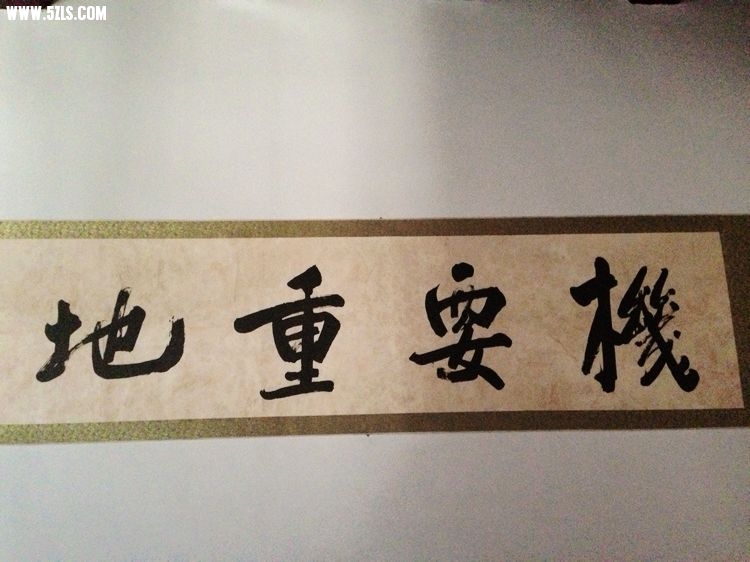 WWW.5ZLS.COM
機要重地